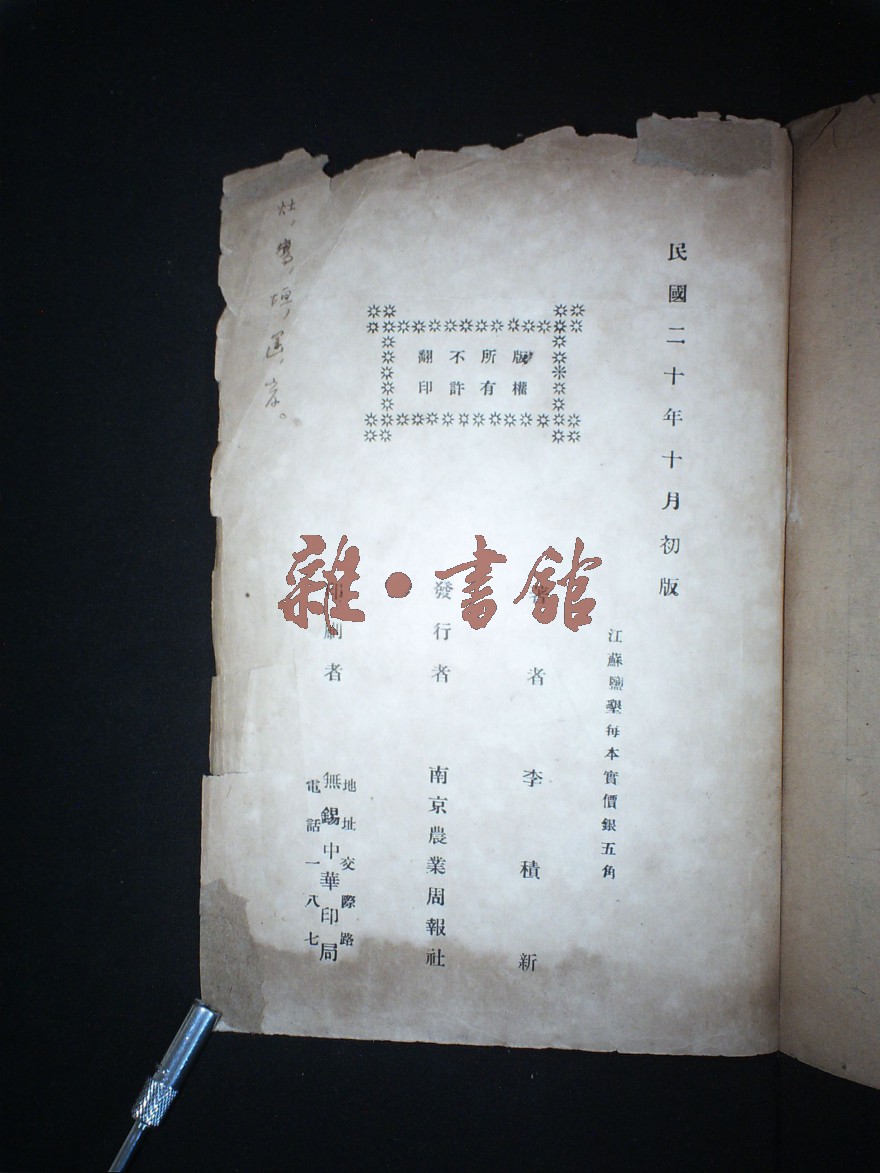 民國二十年十月初版
江蘇鹽墾每本實價銀五角
著者 李積新
發行者 南京農業周報社
印刷者 無錫中華印局
地址交際路
電話一八七
版權
所有
不許
翻印
雜·書館